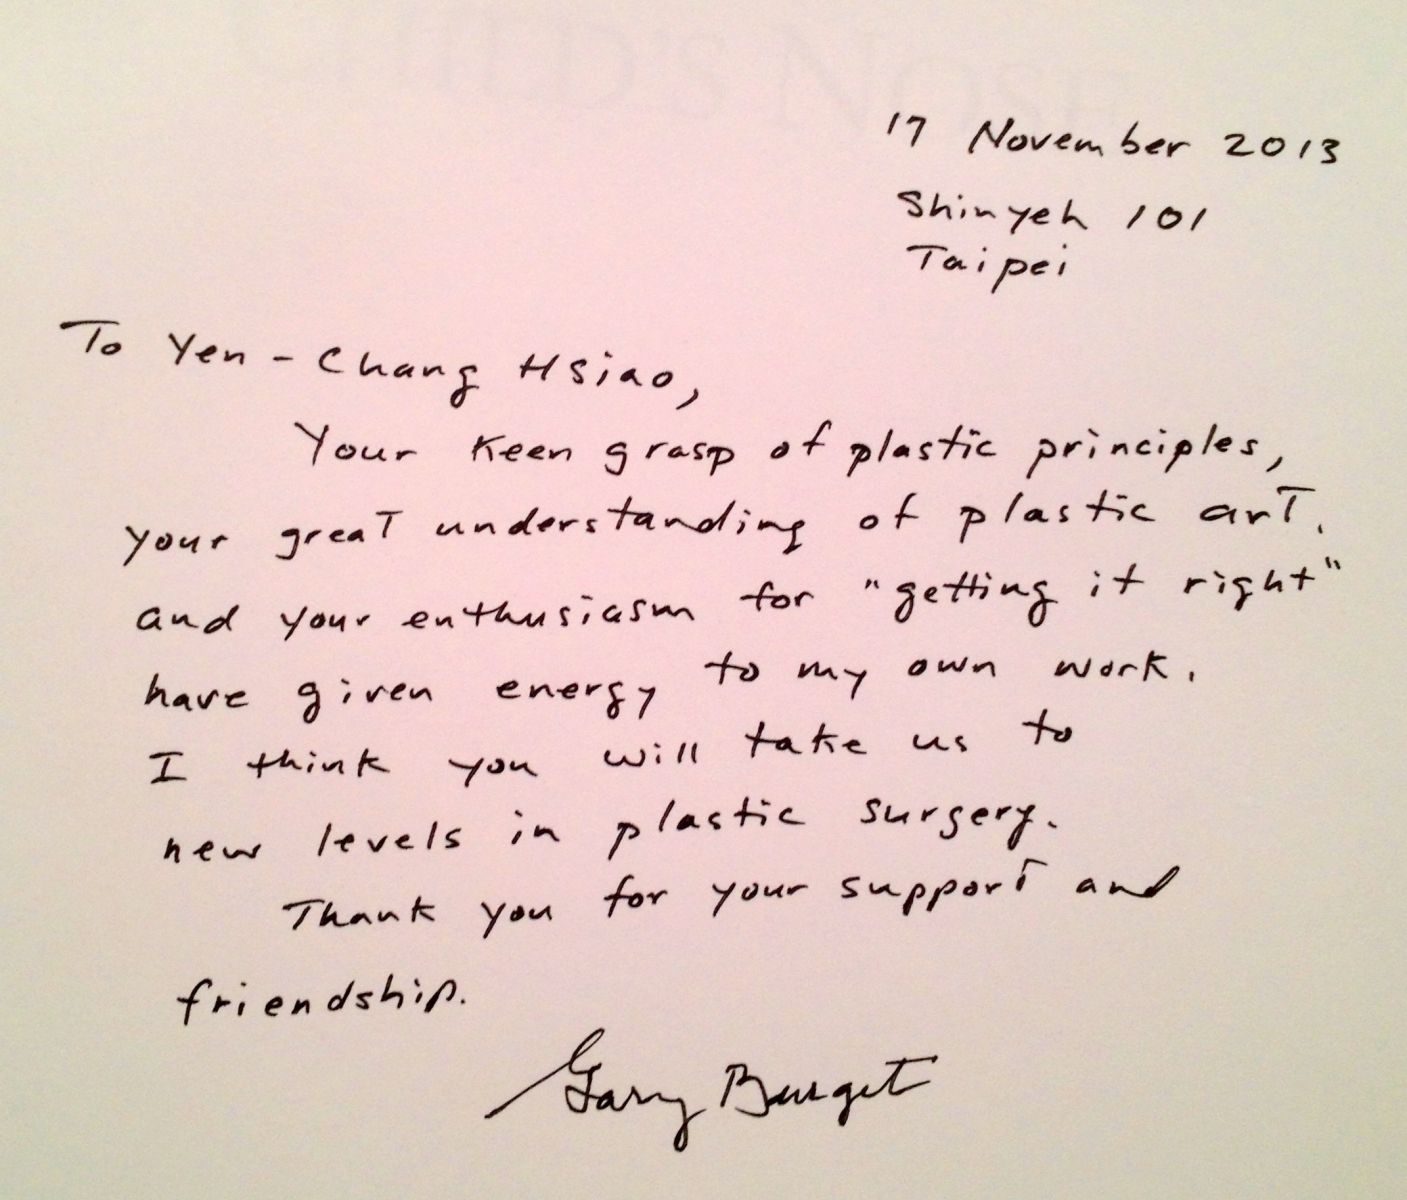 CHILD'S NOSE
17 November 2013
Shinyeh 101
Taipei
To Yen-Chang Hsiao,
Your keen grasp of plastic principles,
your great understanding of plastic art,
and your enthusiasm for "getting it right"
have given energy to my own work.
I think you will take us to
new levels in plastic surgery.
Thank you for your support and
friendship.
Gary Burget